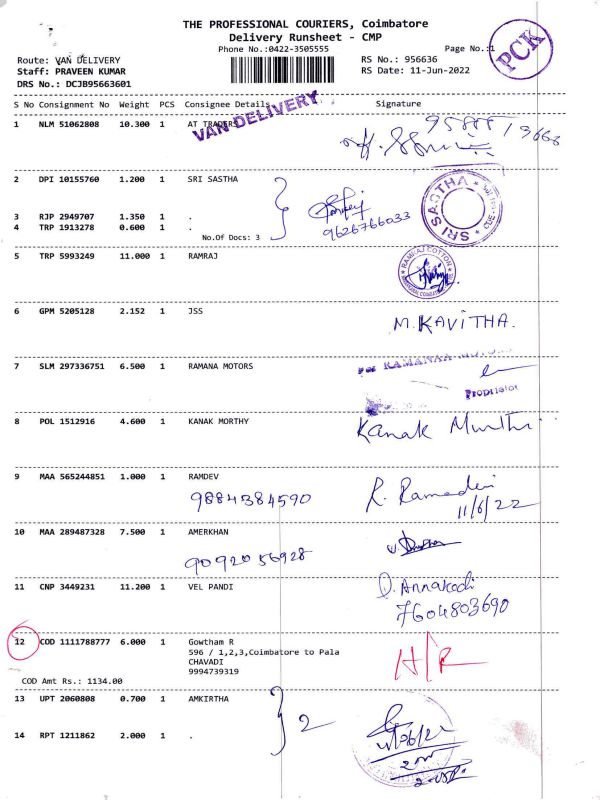 THE PROFESSIONAL COURIERS, Coimbatore
Delivery Runsheet - CMP
Phone No.:0422-3505555
Page No.:1
PCK
Route: VAN DELIVERY
RS No.: 956636
Staff: PRAVEEN KUMAR
RS Date: 11-Jun-2022
DRS No.: DCJB95663601
S No Consignment No Weight PCS Consignee Details Signature
VAN DELIVERY
1 NLM 51062808 10.300 1 AT TRADERS
2 DPI 10155760 1.200 1 SRI SASTHA
SRI SASTHA
3 RJP 2949707 1.350 1 .
9626766033
4 TRP 1913278 0.600 1 .
No.Of Docs: 3
5 TRP 5993249 11.000 1 RAMRAJ
RAMRAJ COTTON
6 GPM 5205128 2.152 1 JSS
M.KAVITHA.
7 SLM 297336751 6.500 1 RAMANA MOTORS
For RAMANAA MOTORS
Proprietor
8 POL 1512916 4.600 1 KANAK MORTHY
Kanak Murthi
9 MAA 565244851 1.000 1 RAMDEV
9884384590
R. Ramadevi
11/6/22
10 MAA 289487328 7.500 1 AMERKHAN
9092056928
11 CNP 3449231 11.200 1 VEL PANDI
D. Annakodi
7604803690
12 COD 1111788777 6.000 1 Gowtham R
596 / 1,2,3,Coimbatore to Pala
CHAVADI
9994739319
H/R
COD Amt Rs.: 1134.00
13 UPT 2060808 0.700 1 AMKIRTHA
2
14 RPT 1211862 2.000 1 .